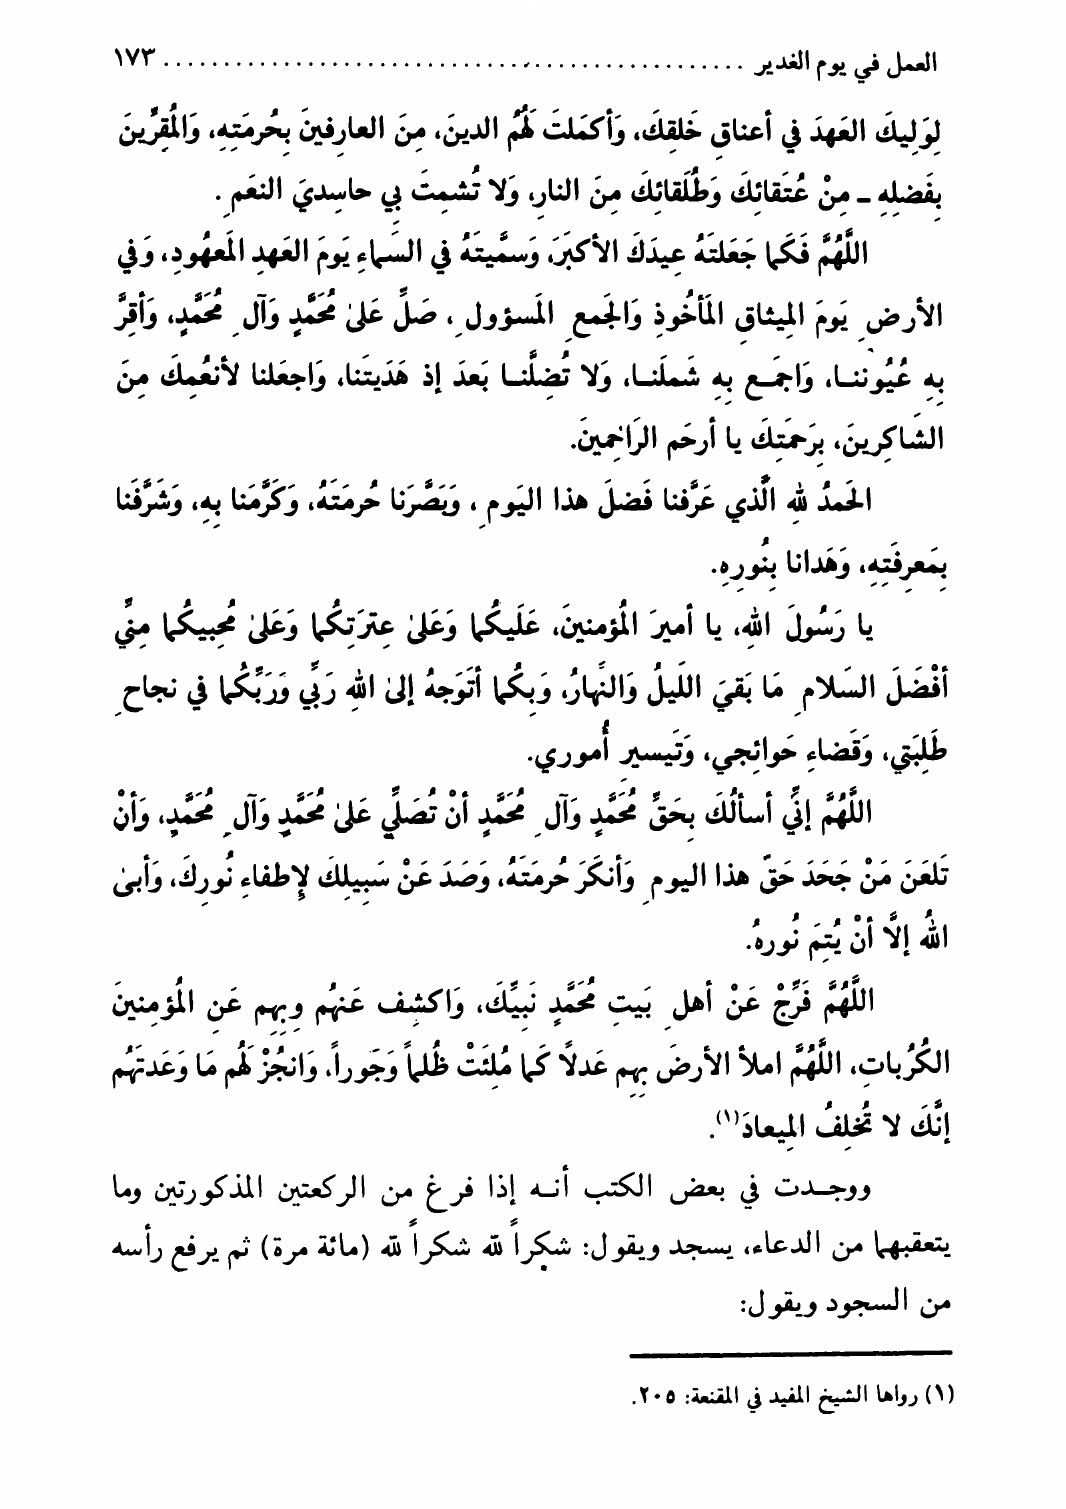 العمل في يوم الغدير ................................................ ١٧٣
لِوَلِيكَ العَهدَ في أعناقِ خَلقِكَ، وَأكمَلتَ لَهُمُ الدينَ، مِنَ العارِفينَ بِحُرمَتِهِ، وَالمُقِرّينَ
بِفَضلِهِ ـ مِنْ عُتَقائِكَ وَطُلَقائِكَ مِنَ النارِ، وَلا تُشمِتَ بي حاسِديَ النعَمِ.
اللَّهُمَّ فَكَما جَعَلتَهُ عيدَكَ الأكبَرَ، وَسمَّيتَهُ في السَماءِ يَومَ العَهدِ المَعهُودِ، وَفي
الأرضِ يَومَ المِيثاقِ المَأخُوذِ وَالجَمعِ المَسؤولِ، صَلِّ عَلىٰ مُحَمَّدٍ وَآلِ مُحَمَّدٍ، وَأقِرَّ
بِهِ عُيُوننـا، وَاجمَـع بِهِ شَملَنـا، وَلا تُضِلَّنـا بَعدَ إذ هَدَيتَنا، وَاجعَلنا لأنعُمِكَ مِنَ
الشاكِرينَ، بِرَحمَتِكَ يا أرحَم الرَاحِمينَ.
الحَمدُ للهِ الَّذي عَرَّفنا فَضلَ هذا اليَومِ، وَبَصَّرَنا حُرمَتَهُ، وَكَرَّمَنا بِهِ، وَشَرَّفَنا
بِمَعرِفَتِهِ، وَهَدانا بِنُورِهِ.
يا رَسُولَ اللهِ، يا أميرَ المُؤمنينَ، عَلَيكُما وَعَلىٰ عِترَتِكُما وَعَلىٰ مُحِبيكُما مِنِّي
أفْضَلَ السَلامِ مَا بَقيَ اللَيلُ وَالنَهارُ، وَبِكُما أتَوَجهُ إلىٰ اللهِ رَبِّي وَرَبِّكُما في نجاحِ
طَلِبَتي، وَقَضاءِ حَوائِجي، وَتَيسيرِ أُموري.
اللَّهُمَّ إنِّي أسألُكَ بِحَقِّ مُحَمَّدٍ وَآلِ مُحَمَّدٍ أنْ تُصَلِّي عَلىٰ مُحَمَّدٍ وَآلِ مُحَمَّدٍ، وَأنْ
تَلعَنَ مَنْ جَحَدَ حَقّ هذا اليومِ وَأنكَرَ حُرمَتَهُ، وَصَدَ عَنْ سَبِيلِكَ لإطفاءِ نُورِكَ، وَأبىٰ
اللهُ إلاَّ أنْ يُتِمَ نُورهُ.
اللَّهُمَّ فَرِّجْ عَنْ أهلِ بَيتِ مُحَمَّدٍ نَبيِّكَ، وَاكشِف عَنهُم وبِهِم عَنِ المُؤمِنينَ
الكُرُباتِ، اللَّهُمَّ املأ الأرضَ بِهِم عَدلاً كَما مُلِئَتْ ظُلماً وَجَوراً، وَانجُزْ لَهُم مَا وَعَدتَهُم
إنَّكَ لا تُخلِفُ المِيعادَ(١).
ووجـدت في بعض الكتب أنـه إذا فرغ من الركعتين المذكورتين وما
يتعقبهما من الدعاء، يسجد ويقول: شكراً للّه شكراً للّه (مائة مرة) ثم يرفع رأسه
من السجود ويقول:
(١) رواها الشيخ المفيد في المقنعة: ٢٠٥.